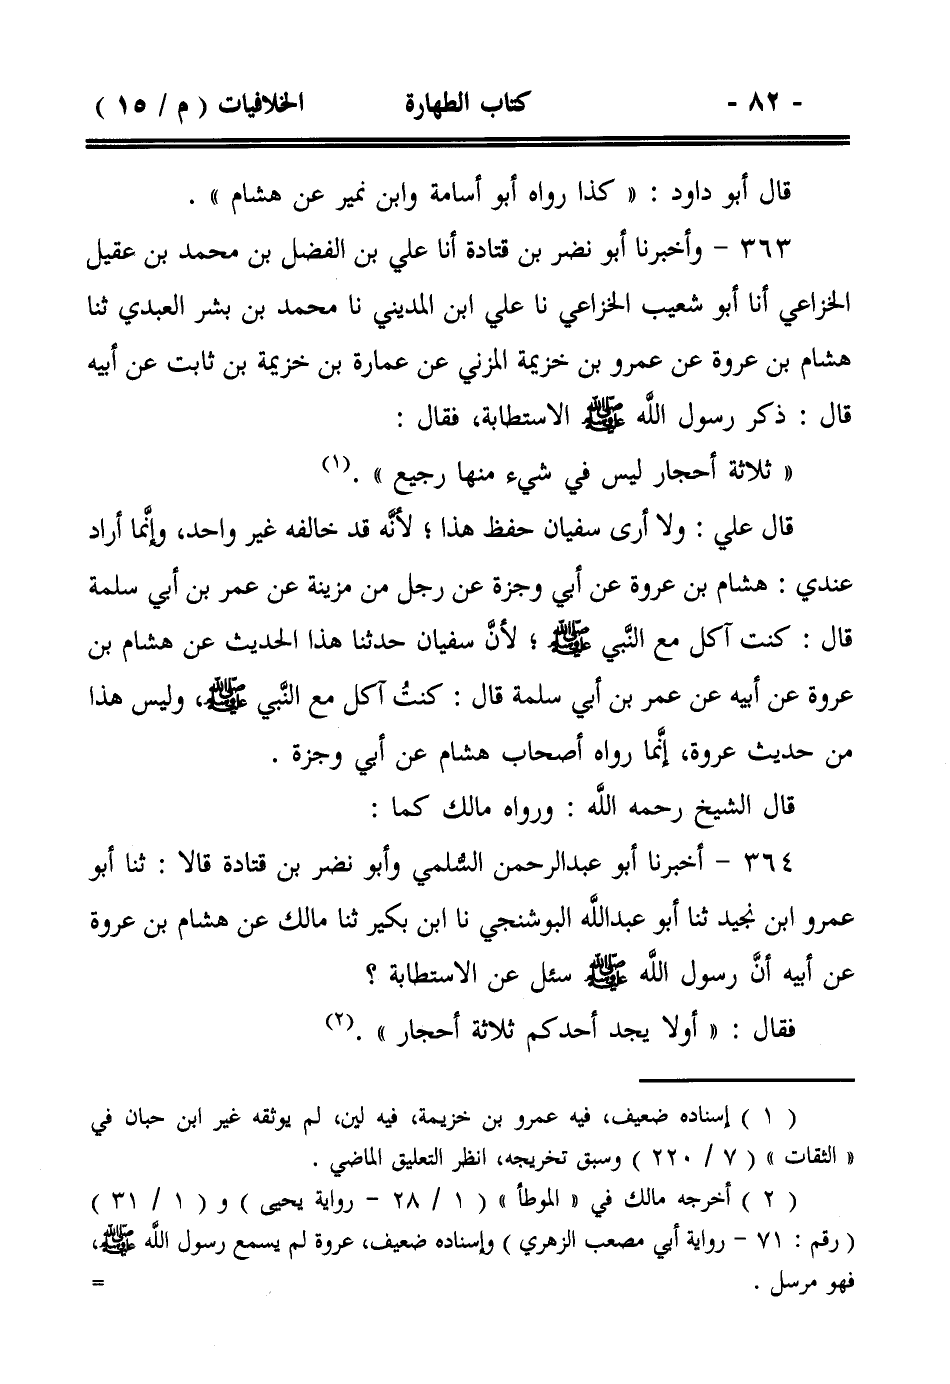 - ٨٢ - كتاب الطهارة الخلافيات ( م / ١٥ )
قال أبو داود : « كذا رواه أبو أسامة وابن نمير عن هشام » .
٣٦٣ - وأخبرنا أبو نضر بن قتادة أنا علي بن الفضل بن محمد بن عقيل
الخزاعي أنا أبو شعيب الخزاعي نا علي ابن المديني نا محمد بن بشر العبدي ثنا
هشام بن عروة عن عمرو بن خزيمة المزني عن عمارة بن خزيمة بن ثابت عن أبيه
قال : ذكر رسول اللَّه ﷺ الاستطابة، فقال :
« ثلاثة أحجار ليس في شيء منها رجيع » .(١)
قال علي : ولا أرى سفيان حفظ هذا ؛ لأنَّه قد خالفه غير واحد، وإنَّما أراد
عندي : هشام بن عروة عن أبي وجزة عن رجل من مزينة عن عمر بن أبي سلمة
قال : كنت آكل مع النَّبي ﷺ ؛ لأنَّ سفيان حدثنا هذا الحديث عن هشام بن
عروة عن أبيه عن عمر بن أبي سلمة قال : كنتُ آكل مع النَّبي ﷺ، وليس هذا
من حديث عروة، إنَّما رواه أصحاب هشام عن أبي وجزة .
قال الشيخ رحمه اللَّه : ورواه مالك كما :
٣٦٤ - أخبرنا أبو عبدالرحمن السُّلمي وأبو نضر بن قتادة قالا : ثنا أبو
عمرو ابن نجيد ثنا أبو عبداللَّه البوشنجي نا ابن بكير ثنا مالك عن هشام بن عروة
عن أبيه أنَّ رسول اللَّه ﷺ سئل عن الاستطابة ؟
فقال : « أولا يجد أحدكم ثلاثة أحجار » .(٢)
( ١ ) إسناده ضعيف، فيه عمرو بن خزيمة، فيه لين، لم يوثقه غير ابن حبان في
« الثقات » ( ٧ / ٢٢٠ ) وسبق تخريجه، انظر التعليق الماضي .
( ٢ ) أخرجه مالك في « الموطأ » ( ١ / ٢٨ - رواية يحيى ) و ( ١ / ٣١ )
( رقم : ٧١ - رواية أبي مصعب الزهري ) وإسناده ضعيف، عروة لم يسمع رسول اللَّه ﷺ،
فهو مرسل . =